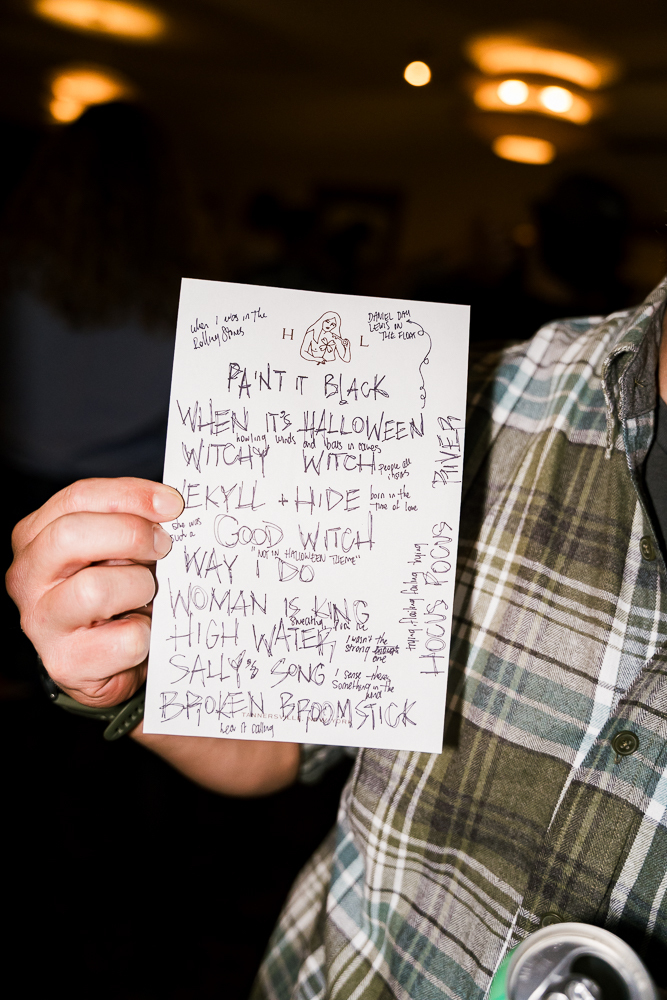 When I was in the
Rolling Stones
H L
DANIEL DAY
LEWIS IN
THE FLOAT
PAINT IT BLACK
WHEN IT'S HALLOWEEN
howling winds and bats in caves
WITCHY WITCH
people all
JEKYLL + HIDE
born in the
time of love
she was
such a
GOOD WITCH
"NOT IN HALLOWEEN THEME"
WAY I DO
WOMAN IS KING
HIGH WATER
I wasn't the
strong enough
one
SALLY'S SONG
I sense there's
something in the
wind
BROKEN BROOMSTICK
TANNERSVILLE
hear it calling
RIVER
HOCUS POCUS